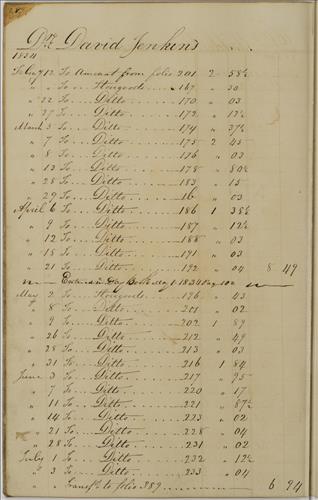 Dr David Jenkins
1834
Feby 12 To Amount from folio 201 2 58½
" " To Hougoods 167 " 30
" 22 To Ditto 170 " 03
" 27 To Ditto 172 " 12½
March 3 To Ditto 174 " 37½
" 7 To Ditto 175 2 45
" 8 To Ditto 176 " 03
" 13 To Ditto 178 " 80½
" 28 To Ditto 183 " 15
" 29 To Ditto " 03
April 6 To Ditto 186 1 38½
" 9 To Ditto 187 " 12½
" 12 To Ditto 188 " 03
" 18 To Ditto 191 " 03
" 21 To Ditto 192 " 04 8 49
Day Book May 1 1834
May 2 To Hougoods 196 " 43
" 8 To Ditto 201 " 02
" 9 To Ditto 202 1 89
" 26 To Ditto 212 " 49
" 28 To Ditto 213 " 03
" 31 To Ditto 216 1 84
June 3 To Ditto 217 " 95
" 7 To Ditto 220 " 17
" 11 To Ditto 221 " 87½
" 14 To Ditto 223 " 02
" 21 To Ditto 228 " 04
" 28 To Ditto 231 " 02
July 1 To Ditto 232 " 12½
" 3 To Ditto 233 " 04
" To folio 389 6 94